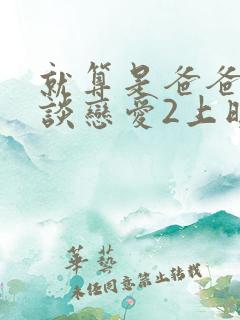 就算是爸爸
談戀愛2上
華藝
未經同意禁止轉載